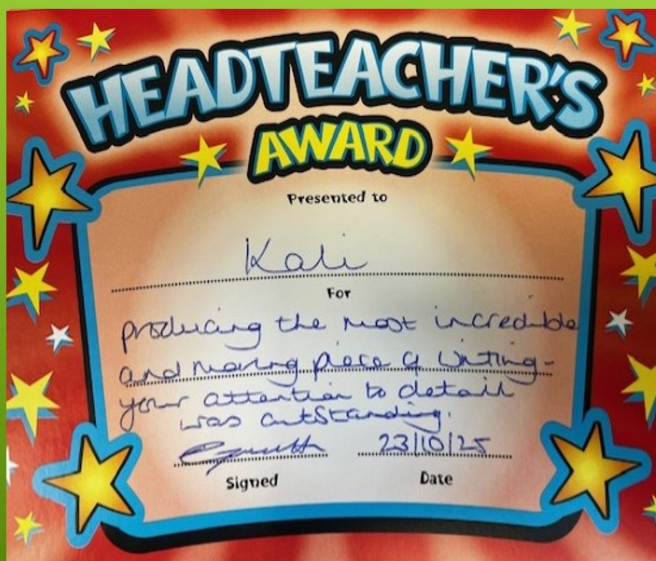 HEADTEACHER'S
AWARD
Presented to
Kali
For
producing the most incredible
and moving piece of writing-
your attention to detail
was outstanding.
23/10/25
Signed Date